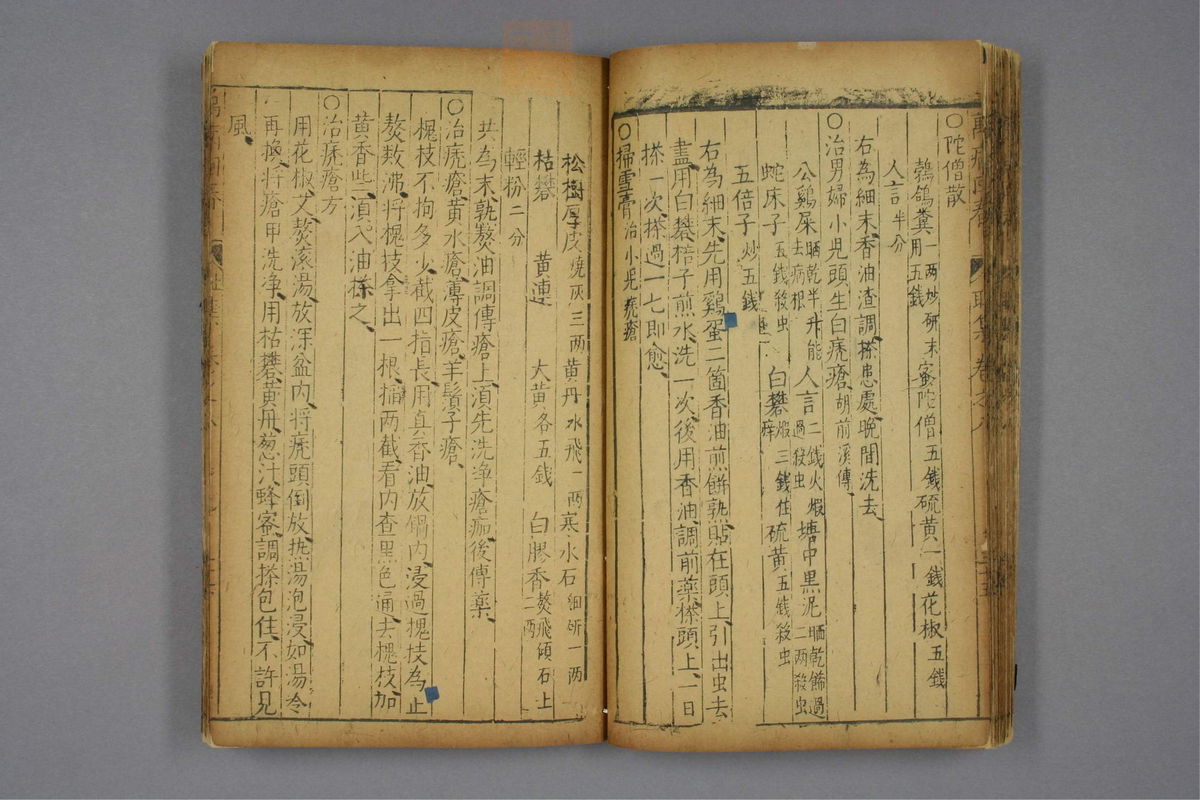 ○陀僧散
鵓鴿糞一兩炒研末用五錢 蜜陀僧五錢 硫黄一錢 花椒五錢
人言半分
右為細末香油渣調搽患處晚間洗去
○治男婦小児頭生白秃瘡胡前溪傳
公鷄屎晒乾半升能去病根 人言二錢火煆過殺虫 塘中黒泥晒乾篩過二兩殺虫
蛇床子五錢殺虫 白礬煆三錢住痒 硫黄五錢殺虫
五倍子炒五錢
右為細末先用鷄蛋二箇香油煎餅熟貼在頭上引出虫去
盡用白礬棓子煎水洗一次後用香油調前藥搽頭上一日
搽一次搽過一七即愈
○掃雪膏治小児秃瘡
松樹厚皮燒灰三兩 黄丹水飛一兩 寒水石細研一两
枯礬 黄連 大黄各五銭 白膠香熬飛傾石上二两
輕粉二分
共為末熟熬油調傅瘡上須先洗净瘡痂後傅藥
○治秃瘡黄水瘡薄皮瘡羊鬚子瘡
槐枝不拘多少截四指長用真香油放鍋内浸過槐枝為止
熬数沸将槐枝拿出一根搯两截看内查黒色通去槐枝加
黄香些須入油搽之
○治秃瘡方
用花椒艾熬滚湯放深盆内将秃頭倒放热湯泡浸如湯冷
再換将瘡甲洗净用枯礬黄丹葱汁蜂蜜調搽包住不許見
風